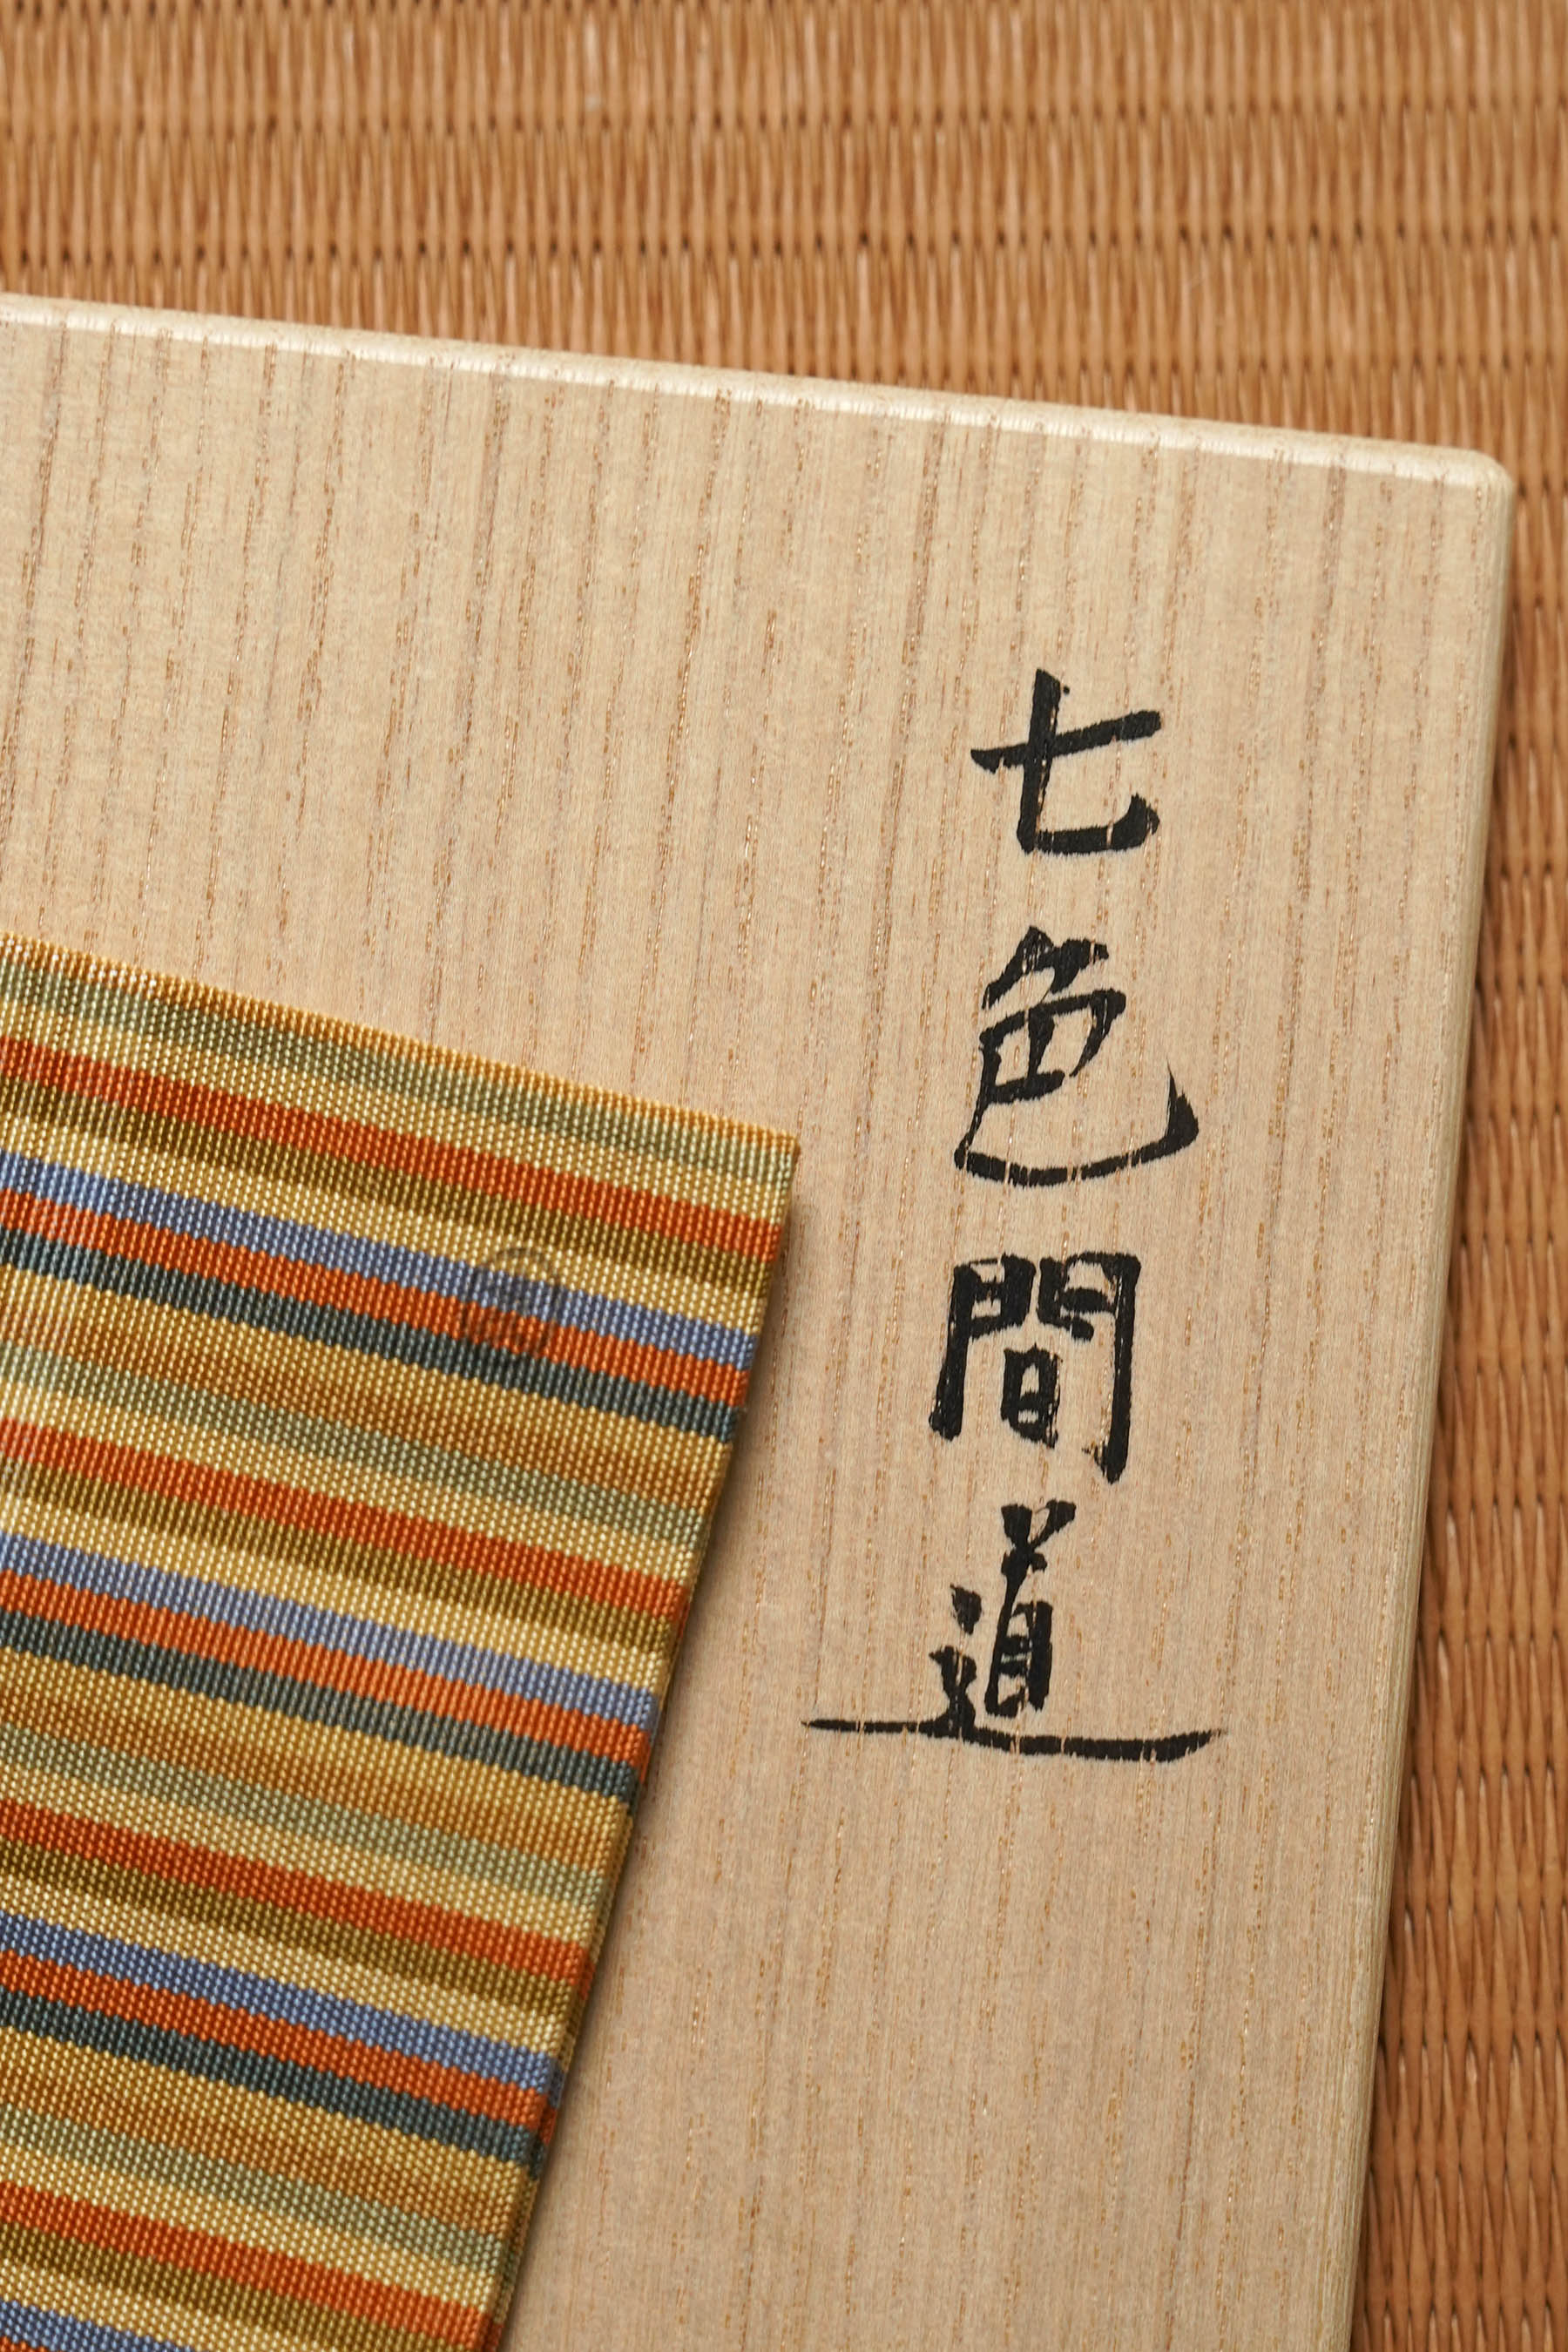 七色間道